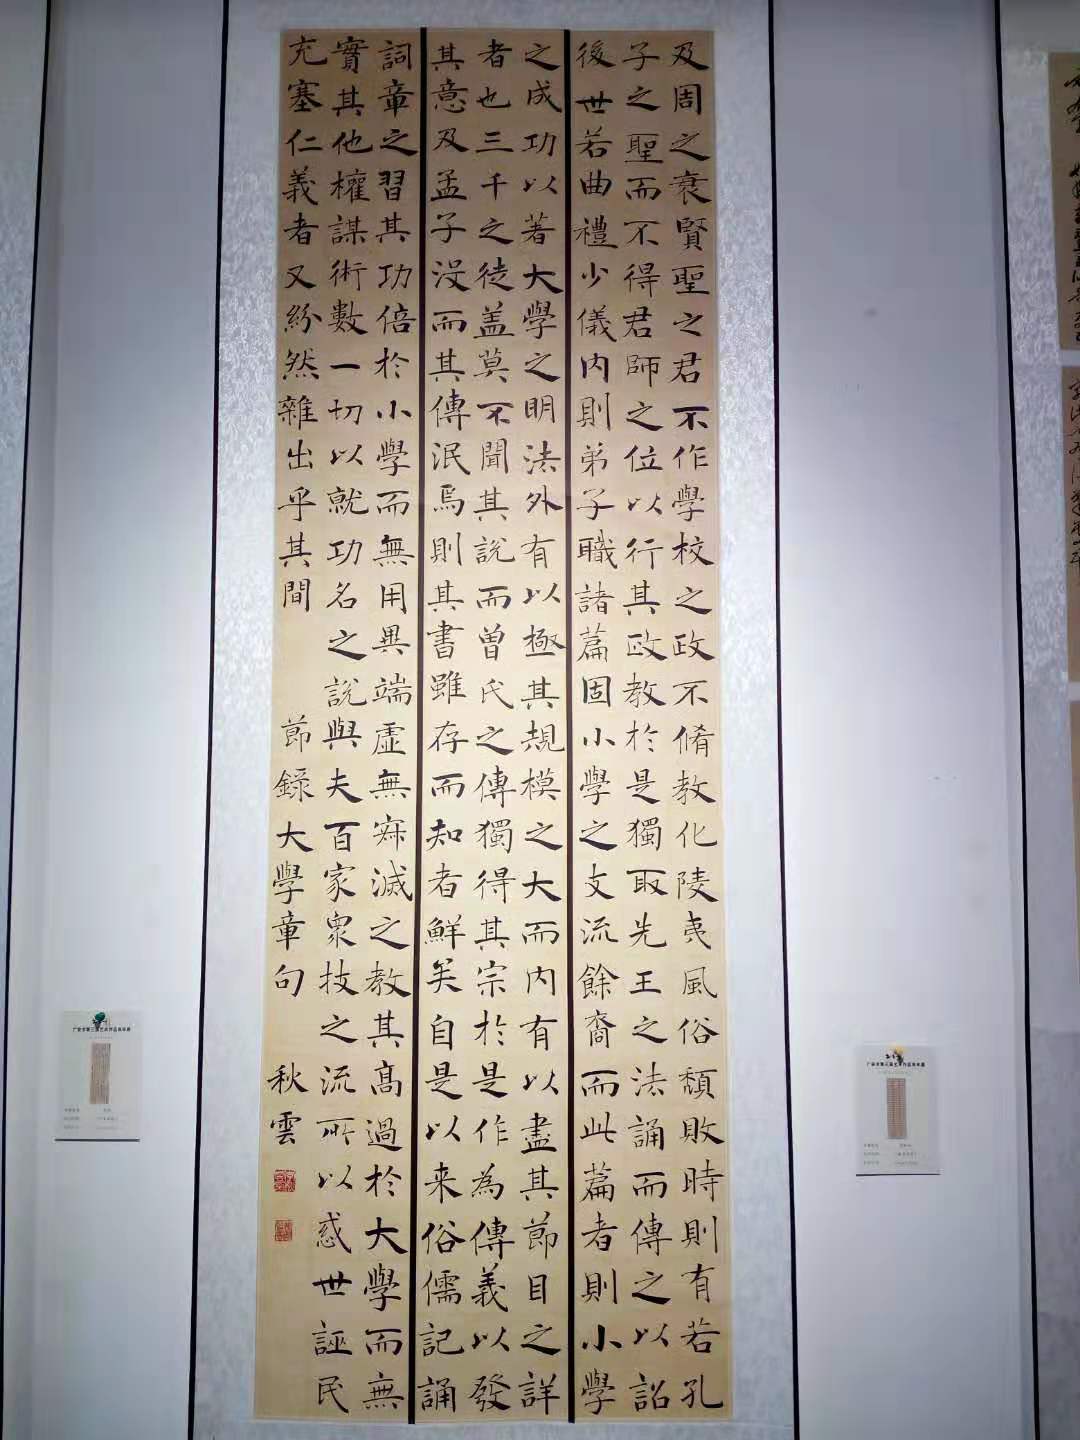 及周之衰賢聖之君不作學校之政不脩教化陵夷風俗頹敗時則有若孔
子之聖而不得君師之位以行其政教於是獨取先王之法誦而傳之以詔
後世若曲禮少儀内則弟子職諸篇固小學之支流餘裔而此篇者則小學
之成功以著大學之明法外有以極其規模之大而内有以盡其節目之詳
者也三千之徒盖莫不聞其說而曾氏之傳獨得其宗於是作為傳義以發
其意及孟子没而其傳泯焉則其書雖存而知者鮮矣自是以来俗儒記誦
詞章之習其功倍於小學而無用異端虛無寂滅之教其高過於大學而無
實其他權謀術數一切以就功名之說與夫百家眾技之流所以惑世誣民
充塞仁義者又紛然雜出乎其間 節錄大學章句 秋雲